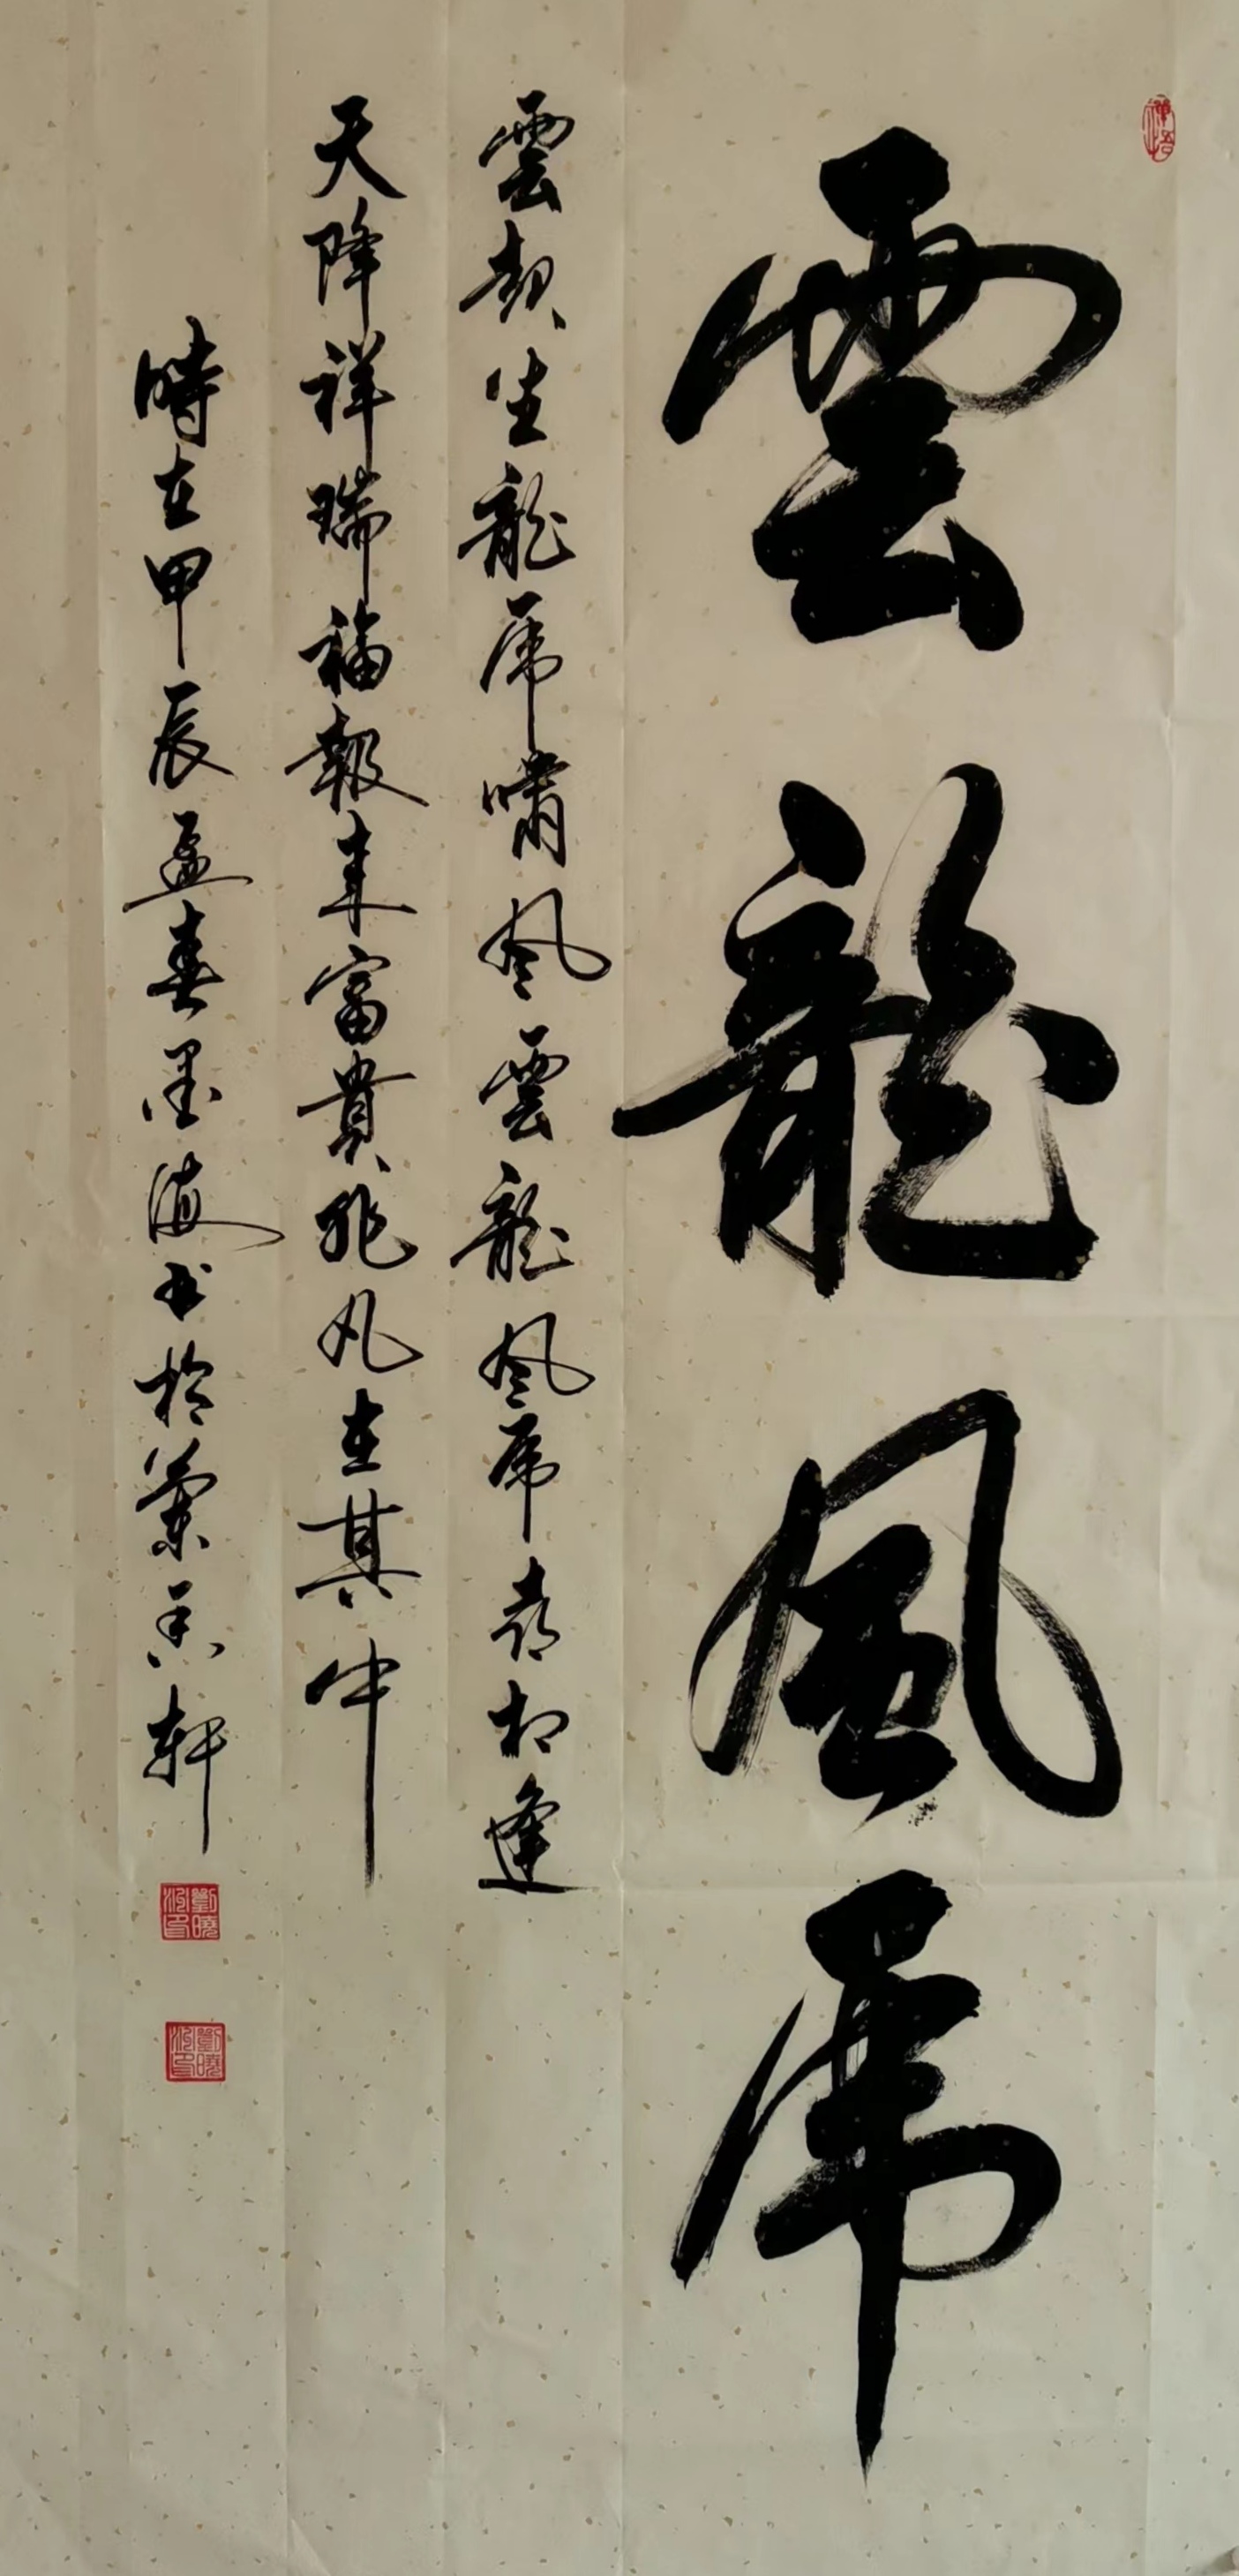 雲龍風虎
雲生龍虎嘯風雲龍風虎都相逢
天降祥瑞福報来富貴非凡在其中
時在甲辰孟春墨海书於蘭香軒